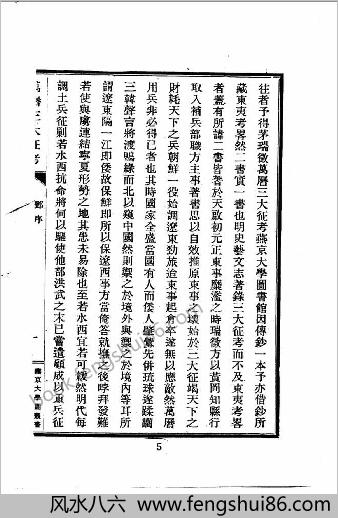 往者予得茅瑞徵萬曆三大征考燕京大學圖書館因傳鈔一本予亦借鈔所
藏東夷考畧然二書實一書也明史藝文志著錄三大征考而不及東夷考畧
者蓋有所諱二書皆著於天啟初元正東事靡濫之時瑞徵方以黃岡知縣行
取入補兵部職方主事著書思以自效推原東事之壞始於三大征竭天下之
財耗天下之兵朝鮮一役始調遼東勁旅迨東事起倉卒遂無以應敵然萬曆
用兵非必得已者也其時國家全盛當國有人而倭人釁釁先併琉球遂蹂躪
三韓聲言將渡鴨綠而北以窺中國然則禦之於境外與禦之於境內等耳所
謂遼東隔一江即倭故保鮮即所以保遼西事方當俺答就撫之後哱拜發難
若使與虜連結寧夏形勢之地其患未易除也至若水西宜若可緩然明代每
調土兵征剿若水西抗命將何以驅使他部洪武之末已嘗遣顧成以重兵征
萬曆三大征考
鄧序
一
燕京大學圖書
5
book.fengshui86.com
风水八六：www.fengshui86.com